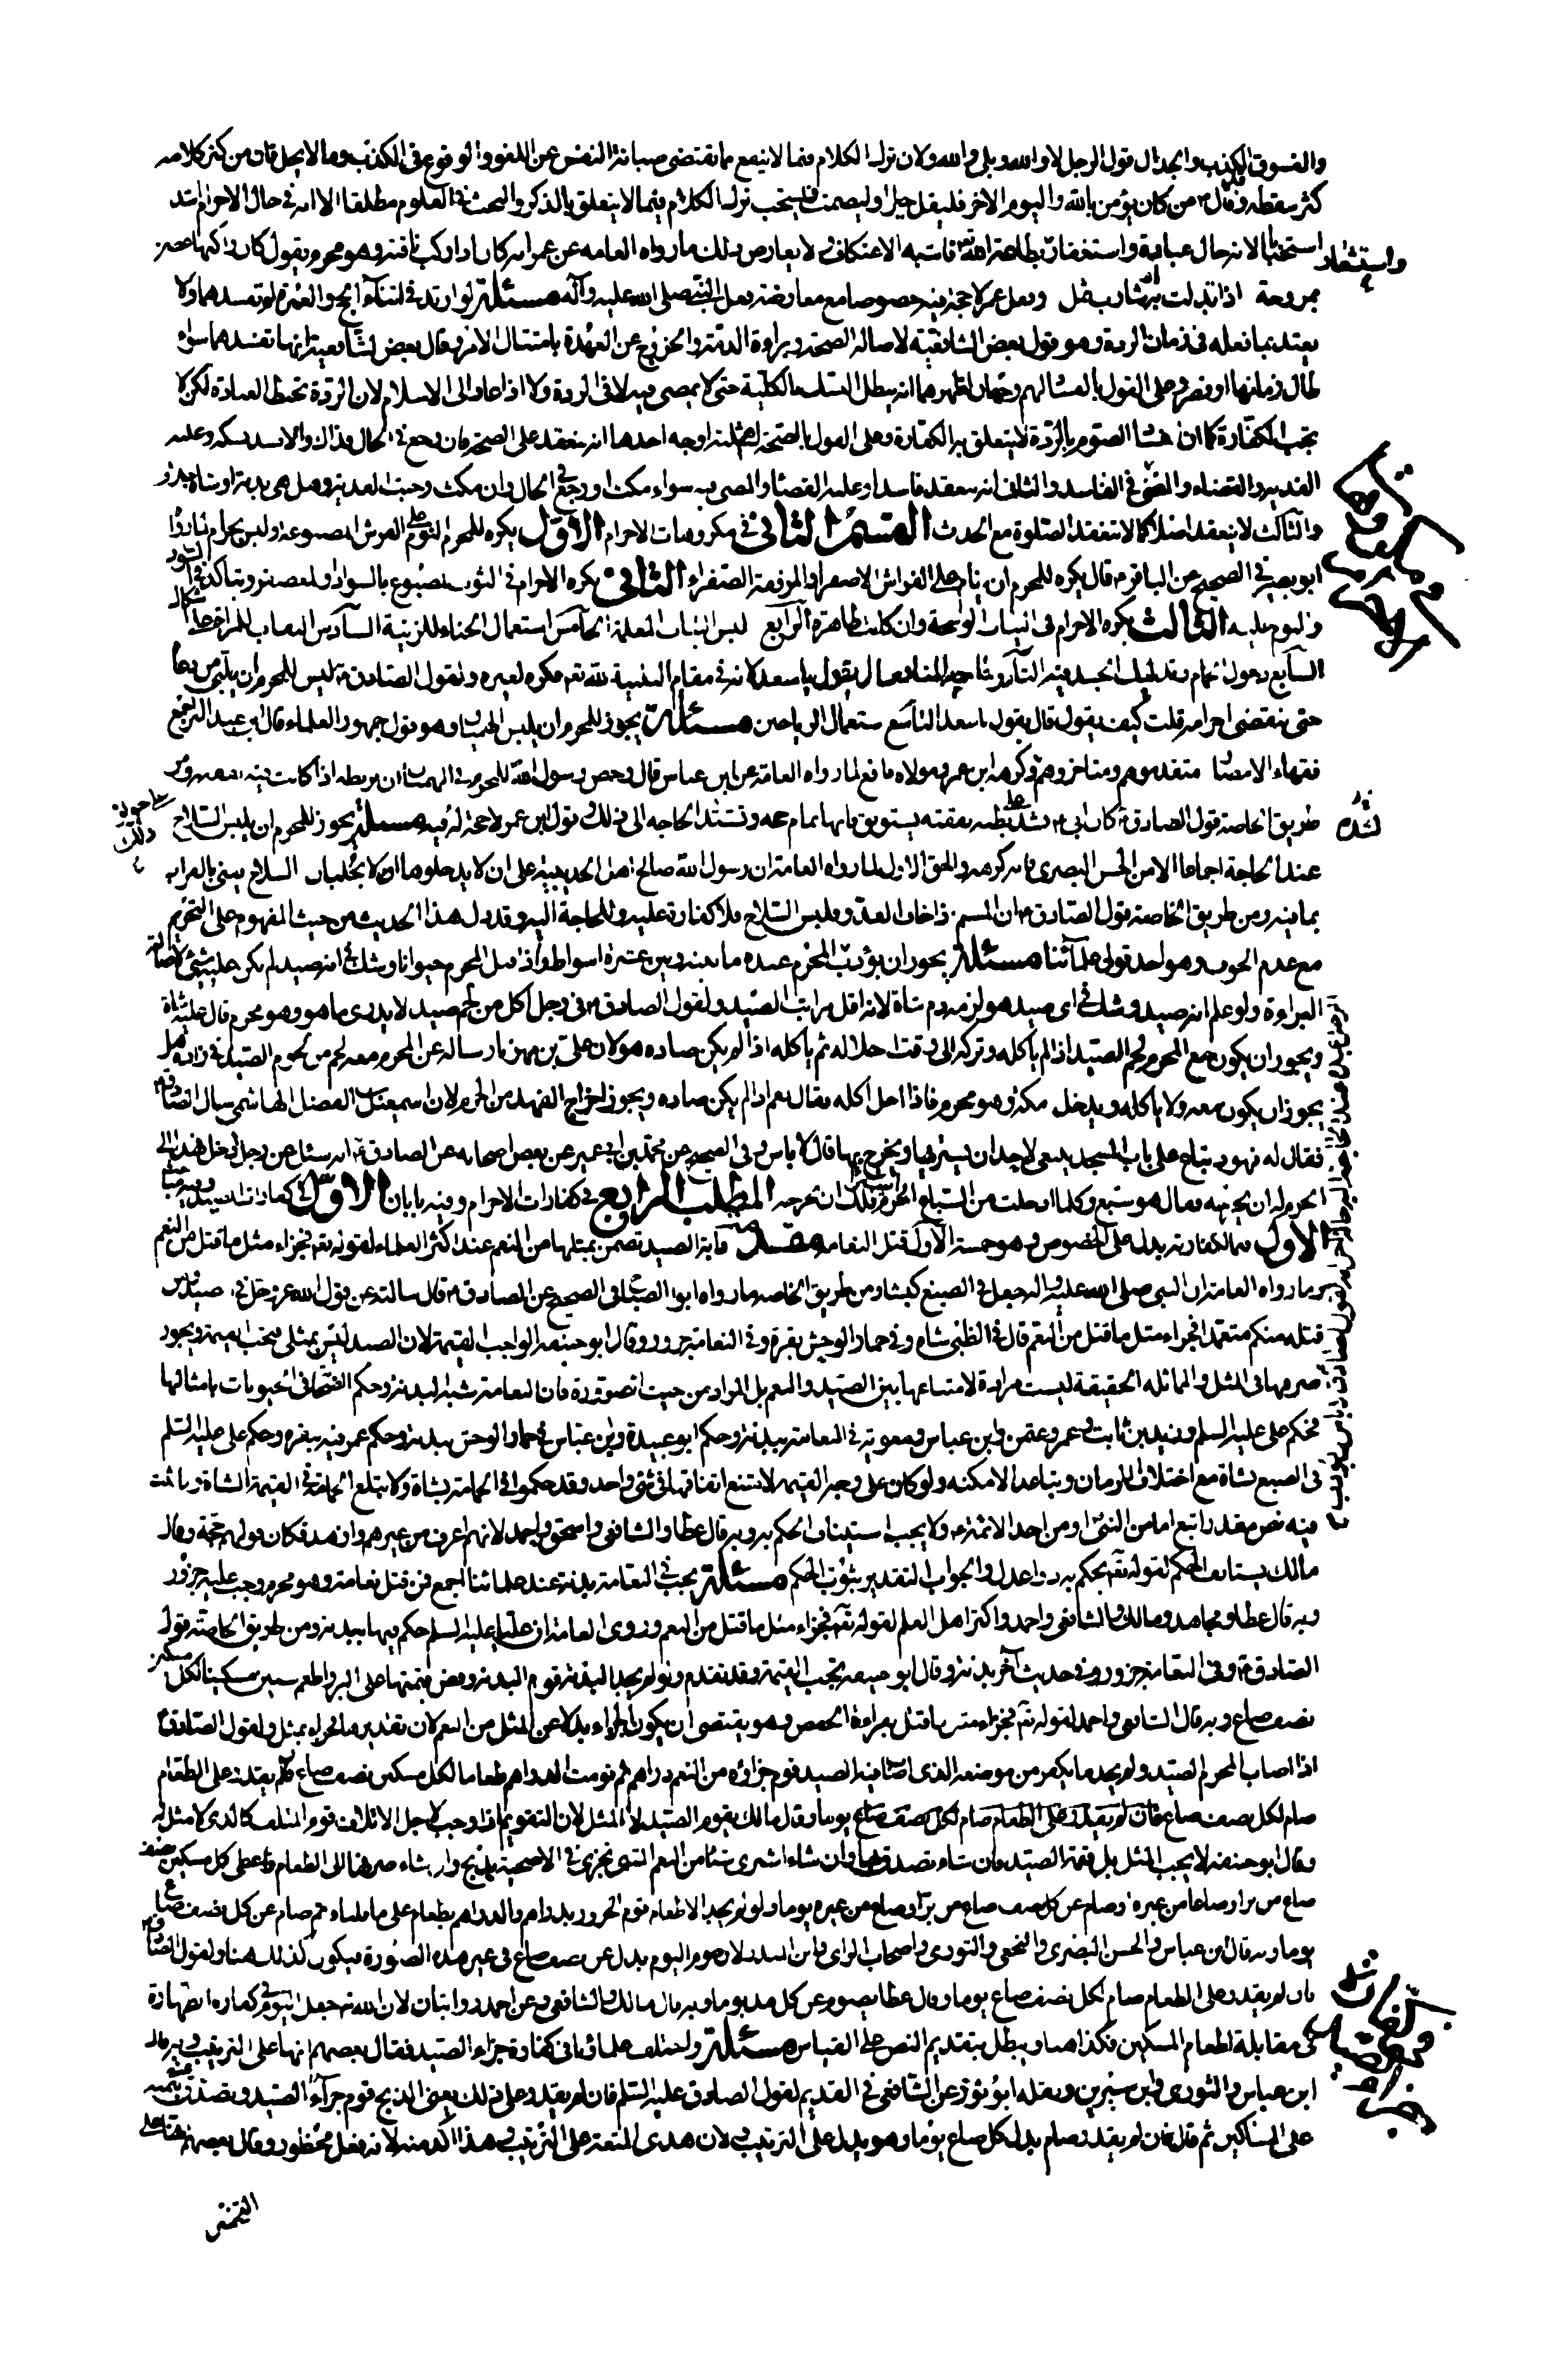 والفسوق الكذب والجدال قول الرجل لا والله وبلى والله ولان ترك الكلام فيما لا ينفع مما يقتضى صيانة النفس عن اللغو والوقوع في الكذب وما لا يحل فان من كثر كلامه
كثر سقطه وقال من كان يؤمن بالله واليوم الاخر فليقل خيرا او ليصمت فيستحب ترك الكلام فيما لا يتعلق بالذكر والبحث في العلوم مطلقا الا انه في حال الاحرام اشد
استحبابا لانه حال عبادة واستشعار بطاعة الله تع فاشبه الاعتكاف ولا يعارض ذلك ما رواه العامه عن عمر انه كان اذا ركب ناقته وهو محرم يقول كان راكبها غصن
بمروحة اذا تدلت به او شارب ثمل وفعل عمر لا حجة فيه خصوصا مع معارضته بفعل النبى صلى الله عليه وآله مسئلة لو ارتد في اثناء الحج والعمرة لم تفسدهما ولا
يعتد بما فعله في زمان الردة وهو قول بعض الشافعية لاصالة الصحة وبراءة الذمة والخروج عن العهدة بامتثال الامر وقال بعض الشافعية انها تفسدهما سواء
طال زمانها او قصر وعلى القول بالفساد لهم وجهان اظهرهما انه يبطل النسك بالكلية حتى لا يمضى فيه لا في الردة ولا اذا عاد الى الاسلام لان الردة تحبط العبادة لكن لا
تجب الكفارة كما ان فساد الصوم بالردة لا يتعلق به الكفارة وعلى القول بالصحة لهم ثلثة اوجه احدها انه ينعقد على الصحة فان رجع في الحال فذاك والا فسد نسكه وعليه
الفدية والقضاء والمضى في الفاسد والثانى انه ينعقد فاسدا وعليه القضاء والمضى فيه سواء مكث او رجع في الحال وان مكث وجبت الفدية وهل هى بدنة او شاة خلاف
والثالث لا ينعقد اصلا كما لا تنعقد الصلوة مع الحدث القسم الثانى في مكروهات الاحرام الاول يكره للمحرم النوم على الفرش المصبوغة وليس بحرام لما رواه
ابو بصير في الصحيح عن الباقر قال يكره للمحرم ان ينام على الفراش الاصفر او المرفقة الصفراء الثانى يكره الاحرام في الثوب المصبوغ بالسواد او المعصفر ويتاكد في السواد
والنوم عليه الثالث يكره الاحرام في الثياب الوسخة وان كانت طاهرة الرابع لبس الثياب المعلمة الخامس استعمال الحناء للزينة السادس النقاب للمراة على اشكال
السابع دخول الحمام وتدليك الجسد فيه الثامن تلبية المنادى بل يقول يا سعد لانه في مقام التلبية لله تعالى فكره لغيره ولقول الصادق ليس للمحرم ان يلبى من دعاه
حتى ينقضى احرامه قلت كيف يقول قال يقول يا سعد التاسع استعمال الرياحين مسئلة يجوز للمحرم ان يلبس الهميان وهو قول جمهور العلماء قال ابن عبد البر اجمع
فقهاء الامصار متقدموهم ومتاخروهم وكرهه ابن عمر ومولاه نافع لما رواه العامة عن ابن عباس قال رخص رسول الله للمحرم في الهميان ان يربطه اذا كانت فيه نفقته ومن
طريق الخاصة قول الصادق كان ابى يشد على بطنه نفقته يستوثق بها فانها تمام حجه وتشتد الحاجه الى ذلك وقول ابن عمر لا حجة فيه مسئلة يجوز للمحرم ان يلبس السلاح
عند الحاجة اجماعا الا من الحسن البصرى فانه كرهه والحق الاول لما رواه العامة ان رسول الله صالح اهل الحديبية على ان لا يدخلوها الا بجلبان السلاح يعنى بالقراب
بما فيه ومن طريق الخاصة قول الصادق ان المحرم اذا خاف العدو فلبس السلاح فلا كفارة عليه وللحاجة اليه وقد دل هذا الحديث من حيث المفهوم على التحريم
مع عدم الخوف وهو احد قولى علمائنا مسئلة يجوز ان يؤدب المحرم عبده ما بينه وبين عشرة اسواط واذا قتل المحرم حيوانا وشك في انه صيد لم يكن عليه شئ لاصالة
البراءة ولو علم انه صيد وشك في اى صيد هو لزمه دم شاة لانه اقل مراتب الصيد ولقول الصادق في رجل اكل من لحم صيد لا يدرى ما هو وهو محرم قال عليه شاة
ويجوز ان يكون مع المحرم لحم الصيد اذا لم ياكله وتركه الى وقت احلاله ثم ياكله اذا لم يكن صاده هو لان على بن مهزيار ساله عن المحرم معه لحم من لحوم الصيد في زاده هل
يجوز ان يكون معه ولا ياكله ويدخل مكة وهو محرم فاذا احل اكله فقال نعم اذا لم يكن صاده ويجوز اخراج الفهد من الحرم لان اسمعيل بن الفضل الهاشمى سال الصادق
فقال له فهود تباع على باب المسجد ينبغى لاحد ان يشتريها ويخرج بها قال لا باس وفى الصحيح عن محمد بن ابى عمير عن بعض اصحابه عن الصادق انه سئل عن رجل ادخل فهدا الى
الحرم اله ان يخرجه فقال هو سبع وكلما ادخلت من السباع الحرم اسيرا فلك ان تخرجه المطلب الرابع في كفارات الاحرام وفيه بابان الاول كفارات الصيد وفيه مباحث
الاول فيما لكفارته بدل على الخصوص وهو خمسة الاول قتل النعامة مقدمة دابة الصيد تضمن بمثلها من النعم عند اكثر العلماء لقوله تع فجزاء مثل ما قتل من النعم
وما رواه العامة ان النبى صلى الله عليه وآله جعل في الضبع كبشا ومن طريق الخاصه ما رواه ابو الصباح في الصحيح عن الصادق قال سالته عن قول الله عز وجل في الصيد ومن
قتله منكم متعمدا فجزاء مثل ما قتل من النعم قال في الظبى شاه وفى حمار الوحش بقرة وفى النعامة جزور وقال ابو حنيفه الواجب القيمة لان الصيد ليس بمثلى فتجب القيمة ويجوز
صرفها في المثل والمماثلة الحقيقة ليست مرادة لامتناعها بين الصيد والنعم بل المراد من حيث الصورة فان النعامة شبه البدنة وحكم الصحابة في الحيوانات بامثالها
فحكم على عليه السلم وزيد بن ثابت وعمر وعثمن وابن عباس ومعوية في النعامة ببدنة وحكم ابو عبيدة وابن عباس في حمار الوحش ببدنة وحكم عمر فيه ببقرة وحكم على عليه السلم
في الضبع بشاة مع اختلاف الازمان وتباعد الامكنه ولو كان على وجه القيمة لامتنع اتفاقها في شئ واحد وقد حكموا في الحمامة بشاة ولا تبلغ الحمامة في القيمة الشاة وما ثبت
فيه نص مقدر اتبع اما من النبى او من احد الائمة ولا يجب استيناف الحكم به وبه قال عطا والشافعى واسحق واحمد لانهم اعرف من غيرهم وازهد فكان قولهم حجة وقال
مالك يستانف الحكم لقوله تع يحكم به ذوا عدل والجواب التقدير ثبوت الحكم مسئلة يجب في النعامة بدنة عند علمائنا اجمع فمن قتل نعامة وهو محرم وجب عليه جزور
وبه قال عطا ومجاهد ومالك والشافعى واحمد واكثر اهل العلم لقوله تع فجزاء مثل ما قتل من النعم وروى العامة ان عليا عليه السلم حكم فيها ببدنة ومن طريق الخاصة قول
الصادق وفى النعامة جزور وفى حديث آخر بدنة وقال ابو حنيفه تجب القيمة وقد تقدم ولو لم يجد البدنة قوم البدنة وفض قيمتها على البر واطعم ستين مسكينا لكل مسكين
نصف صاع وبه قال الشافعى واحمد لقوله تع فجزاء مثل ما قتل بقراءة الخفض وهو يقتضى ان يكون الجزاء بدلا عن المثل من النعم لان تقديرها فجزاء بمثل ولقول الصادق
اذا اصاب المحرم الصيد ولم يجد ما يكفر من موضعه الذى اصاب فيه الصيد قوم جزاؤه من النعم دراهم ثم قومت الدراهم طعاما لكل مسكين نصف صاع فان لم يقدر على الطعام
صام لكل نصف صاع فان لم يقدر على الطعام صام لكل نصف صاع يوما وقال مالك يقوم الصيد لا المثل لان التقويم اذا وجب لاجل الاتلاف قوم المتلف كالذى لا مثل له
وقال ابو حنيفه لا يجب المثل بل قيمة الصيد فان شاء تصدق بها وان شاء اشترى شيئا من النعم التى تجزى في الاضحية يذبح وان شاء صرفها الى الطعام فاعطى كل مسكين نصف
صاع من بر او صاعا من غيره او صام عن كل نصف صاع من بر او صاع من غيره يوما ولو لم يجد الاطعام قوم الجزور بدراهم والدراهم بطعام على ما قلناه ثم صام عن كل نصف صاع
يوما وبه قال ابن عباس والحسن البصرى والنخعى والثورى واصحاب الراى وابن المنذر لان صوم اليوم بدل عن نصف صاع في غير هذه الصورة فيكون كذلك هنا ولقول الصادق
فان لم يقدر على الطعام صام لكل نصف صاع يوما وقال عطا يصوم عن كل مد يوما وبه قال مالك والشافعى وعن احمد روايتان لان الله تع جعل اليوم في كفارة الظهار
في مقابلة اطعام المسكين فكذا هنا ويبطل بتقديم النص على القياس مسئلة واختلف علماؤنا في كفارة جزاء الصيد فقال بعضهم انها على الترتيب وبه قال
ابن عباس والثورى وابن سيرين ونقله ابو ثور عن الشافعى في القديم لقول الصادق عليه السلم فان لم يقدر على ذلك يعنى الذبح قوم جزاء الصيد وتصدق بثمنه
على المساكين ثم قال فان لم يقدر صام بدل كل صاع يوما وهو يدل على الترتيب ولان هدى المتعة على الترتيب وهذا اكد منه لانه بفعل محظور وقال بعضهم